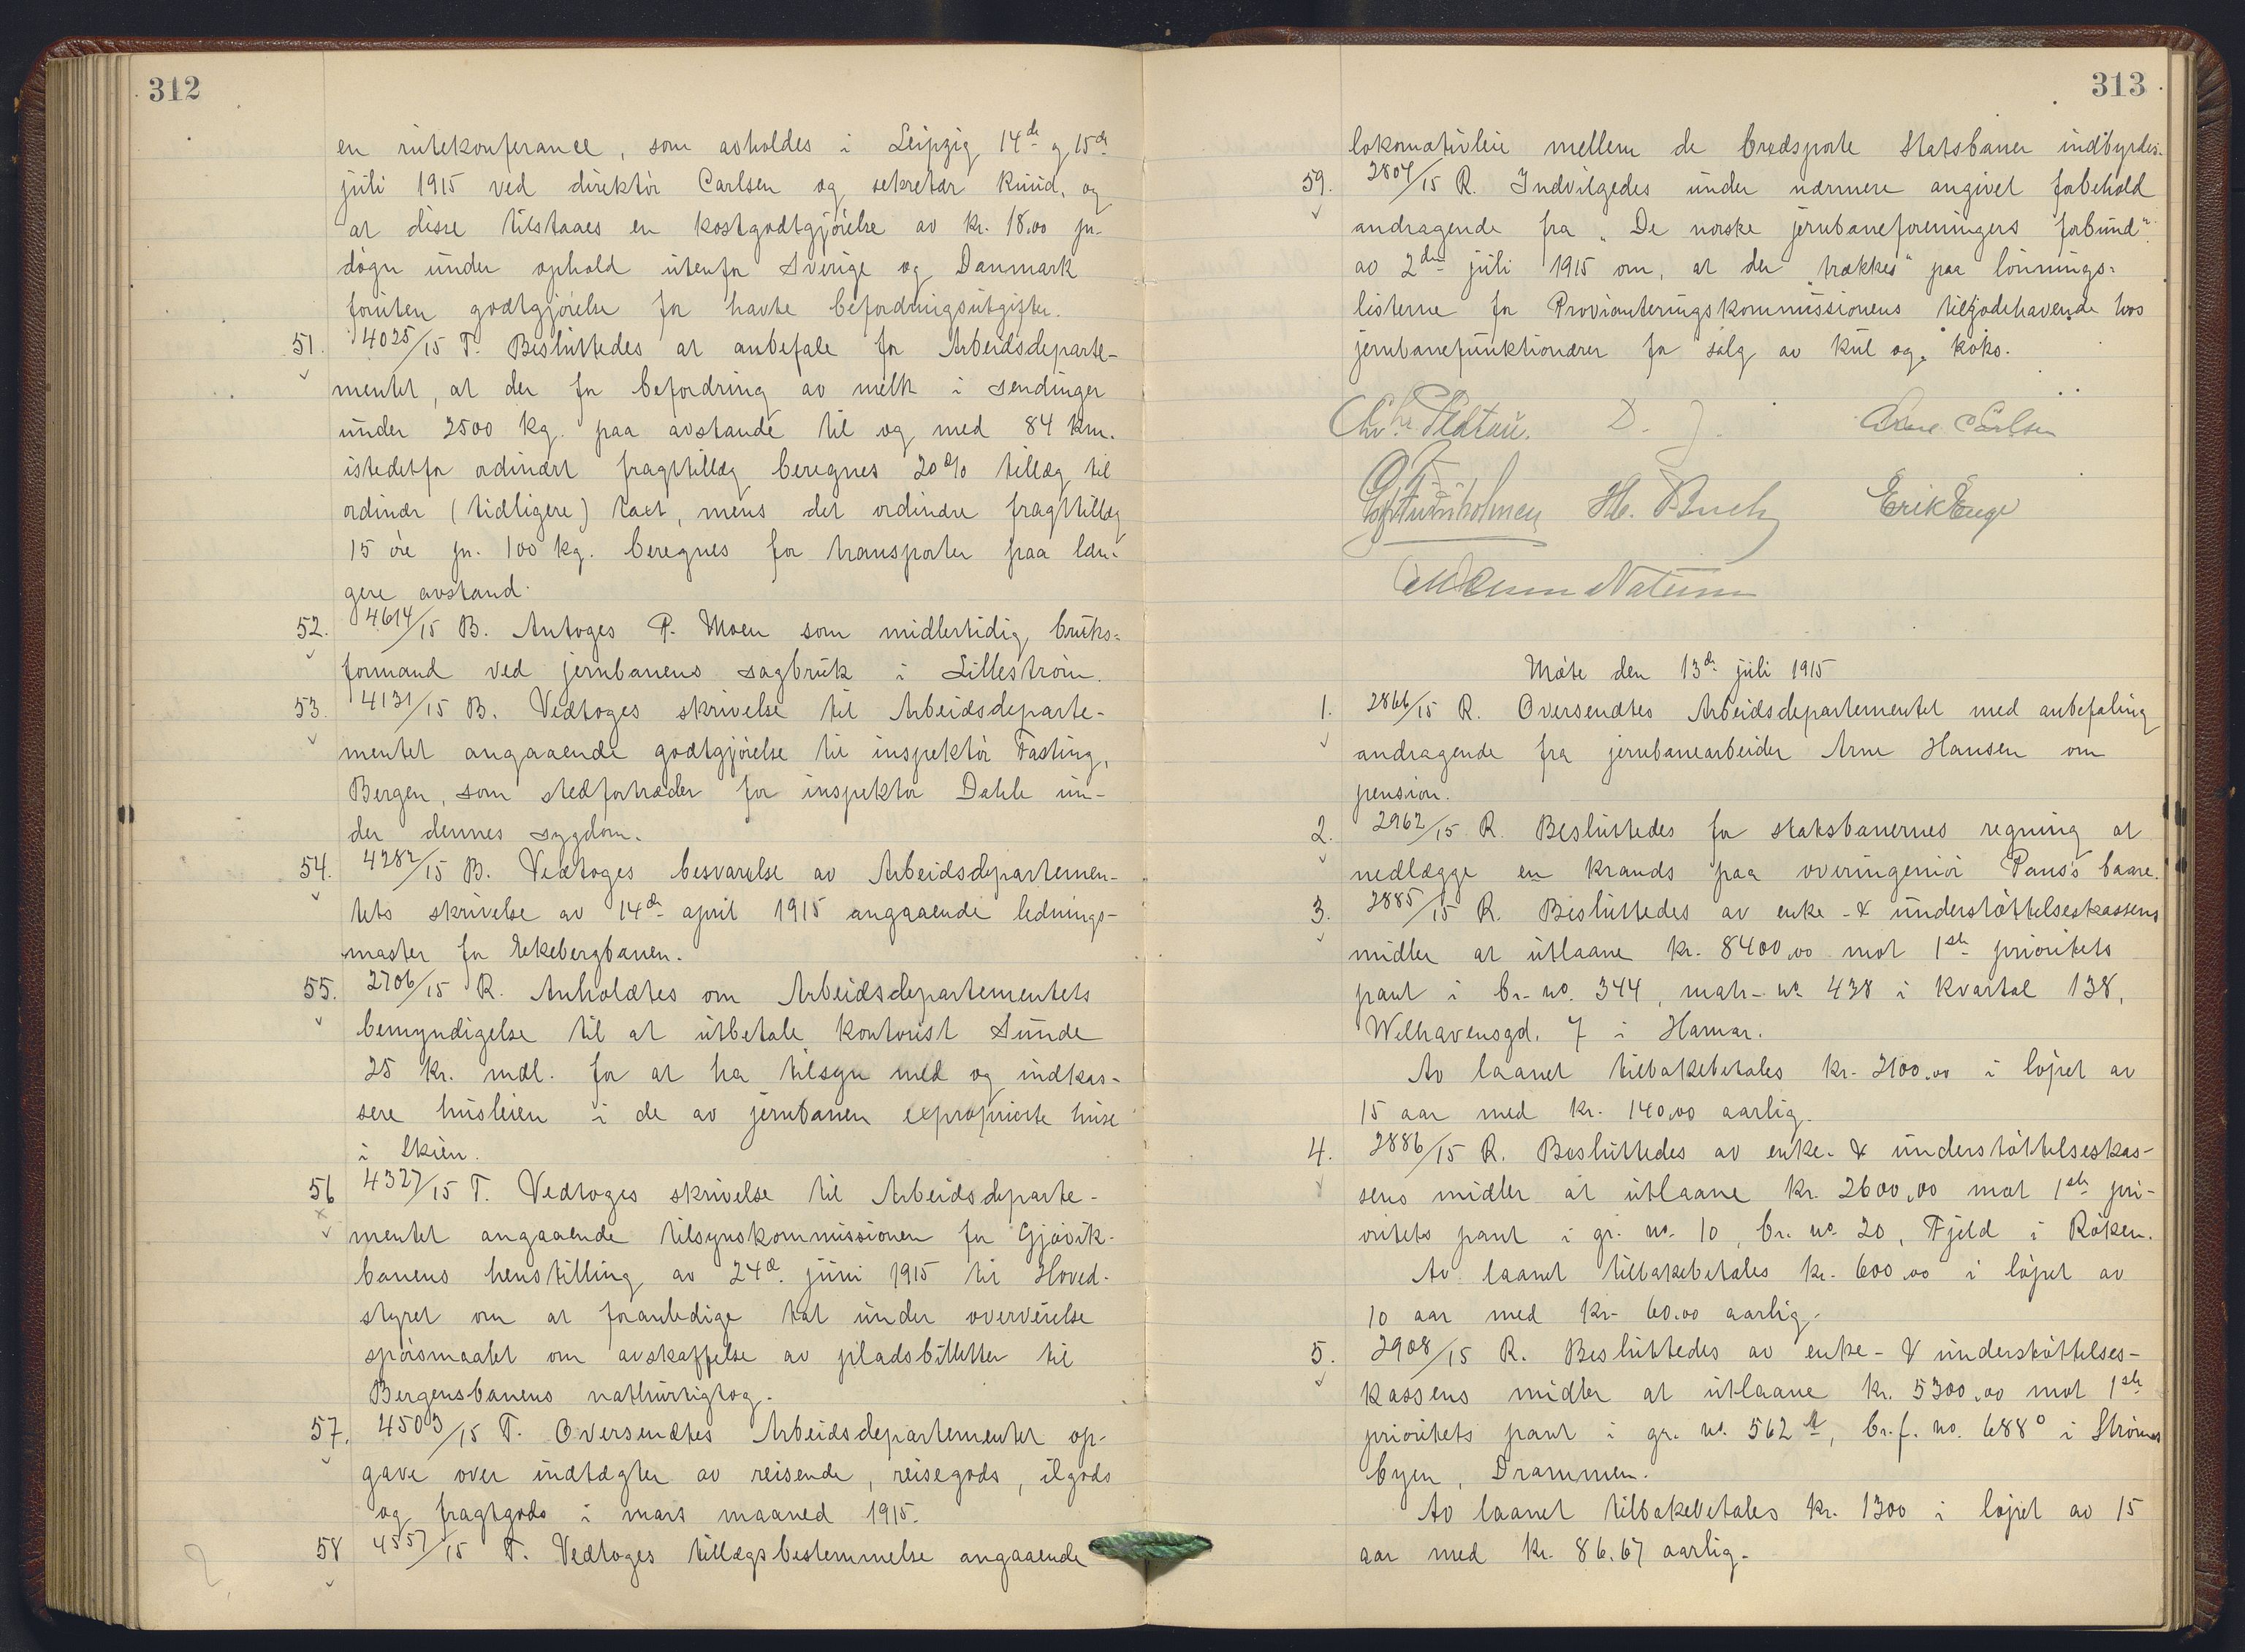 312
en rutekonferance, som avholdes i Leipzig 14de og 15de
juli 1915 ved direktör Carlsen og sekretær Ruud, og
at disse tilstaaes en kostgodtgjörelse av kr. 18.00 pr.
dögn under ophold utenfor Sverige og Danmark
foruten godtgjörelse for havte befordringsutgifter.
51. 4025/15 T. Besluttedes at anbefale for Arbeidsdeparte-
mentet, at der for befordring av melk i sendinger
under 2500 kg. paa avstande til og med 84 km.
istedetfor ordinært fragttillæg beregnes 20% tillæg til
ordinær (tidligere) taxt, mens det ordinære fragttillæg
15 öre pr. 100 kg. beregnes for transporter paa læn-
gere avstand.
52. 4614/15 B. Antoges P. Moen som midlertidig bruks-
formand ved jernbanens sagbruk i Lilleström.
53. 4131/15 B. Vedtoges skrivelse til Arbeidsdeparte-
mentet angaaende godtgjörelse til inspektör Fasting,
Bergen, som stedfortræder for inspektör Dahle un-
der dennes sygdom.
54. 4282/15 B. Vedtoges besvarelse av Arbeidsdepartemen-
tets skrivelse av 14de april 1915 angaaende lednings-
master for Ekebergbanen.
55. 2706/15 R. Anholdtes om Arbeidsdepartementets
bemyndigelse til at utbetale kontorist Sunde
25 kr. mdl. for at ha tilsyn med og indkas-
sere husleien i de av jernbanen exproprierte huse
i Skien.
56 4327/15 T. Vedtoges skrivelse til Arbeidsdeparte-
mentet angaaende tilsynskommissionen for Gjövik-
banens henstilling av 24de juni 1915 til Hoved-
styret om at foranledige tat under overveielse
spörsmaalet om avskaffelse av pladsbilletter til
Bergensbanens nathurtigtog.
57. 4503/15 T. Oversendtes Arbeidsdepartementet op-
gave over indtægter av reisende, reisegods, ilgods
og fragtgods i mars maaned 1915.
58 4557/15 T. Vedtoges tillægsbestemmelse angaaende
313
lokomotivleie mellem de bredsporte Statsbaner indbyrdes.
59. 2804/15 R. Indvilgedes under nærmere angivet forbehold
andragende fra "De norske jernbaneforeningers forbund"
av 2den juli 1915 om, at der "trækkes" paa lönnings-
listerne for Provianteringskommissionens tilgodehavende hos
jernbanefunktionærer for salg av kul og koks.
Chr. Platou. D. J. Arne Carlsen
H. Buch Erik Enge
Möte den 13de juli 1915
1. 2866/15 R. Oversendtes Arbeidsdepartementet med anbefaling
andragende fra jernbanearbeider Arne Hansen om
pension.
2. 2962/15 R. Besluttedes for statsbanernes regning at
nedlægge en krands paa overingeniör Paus's baare.
3. 2885/15 R. Besluttedes av enke- & understöttelseskassens
midler at utlaane kr. 8400.00 mot 1ste prioritets
pant i br.-no. 344, matr.-no. 438 i kvartal 138,
Welhavensgd. 7 i Hamar.
Av laanet tilbakebetales kr. 2100.00 i löpet av
15 aar med kr. 140.00 aarlig.
4. 2886/15 R. Besluttedes av enke- & understöttelseskas-
sens midler at utlaane kr. 2600.00 mot 1ste pri-
oritets pant i gr. no. 10, br. no. 20, Fjeld i Röken.
Av laanet tilbakebetales kr. 600.00 i löpet av
10 aar med kr. 60.00 aarlig.
5. 2908/15 R. Besluttedes av enke- & understöttelses-
kassens midler at utlaane kr. 5300.00 mot 1ste
prioritets pant i gr. no. 562 A, br.f. no. 688° i Ströms
byen, Drammen.
Av laanet tilbakebetales kr. 1300 i löpet av 15
aar med kr. 86.67 aarlig.